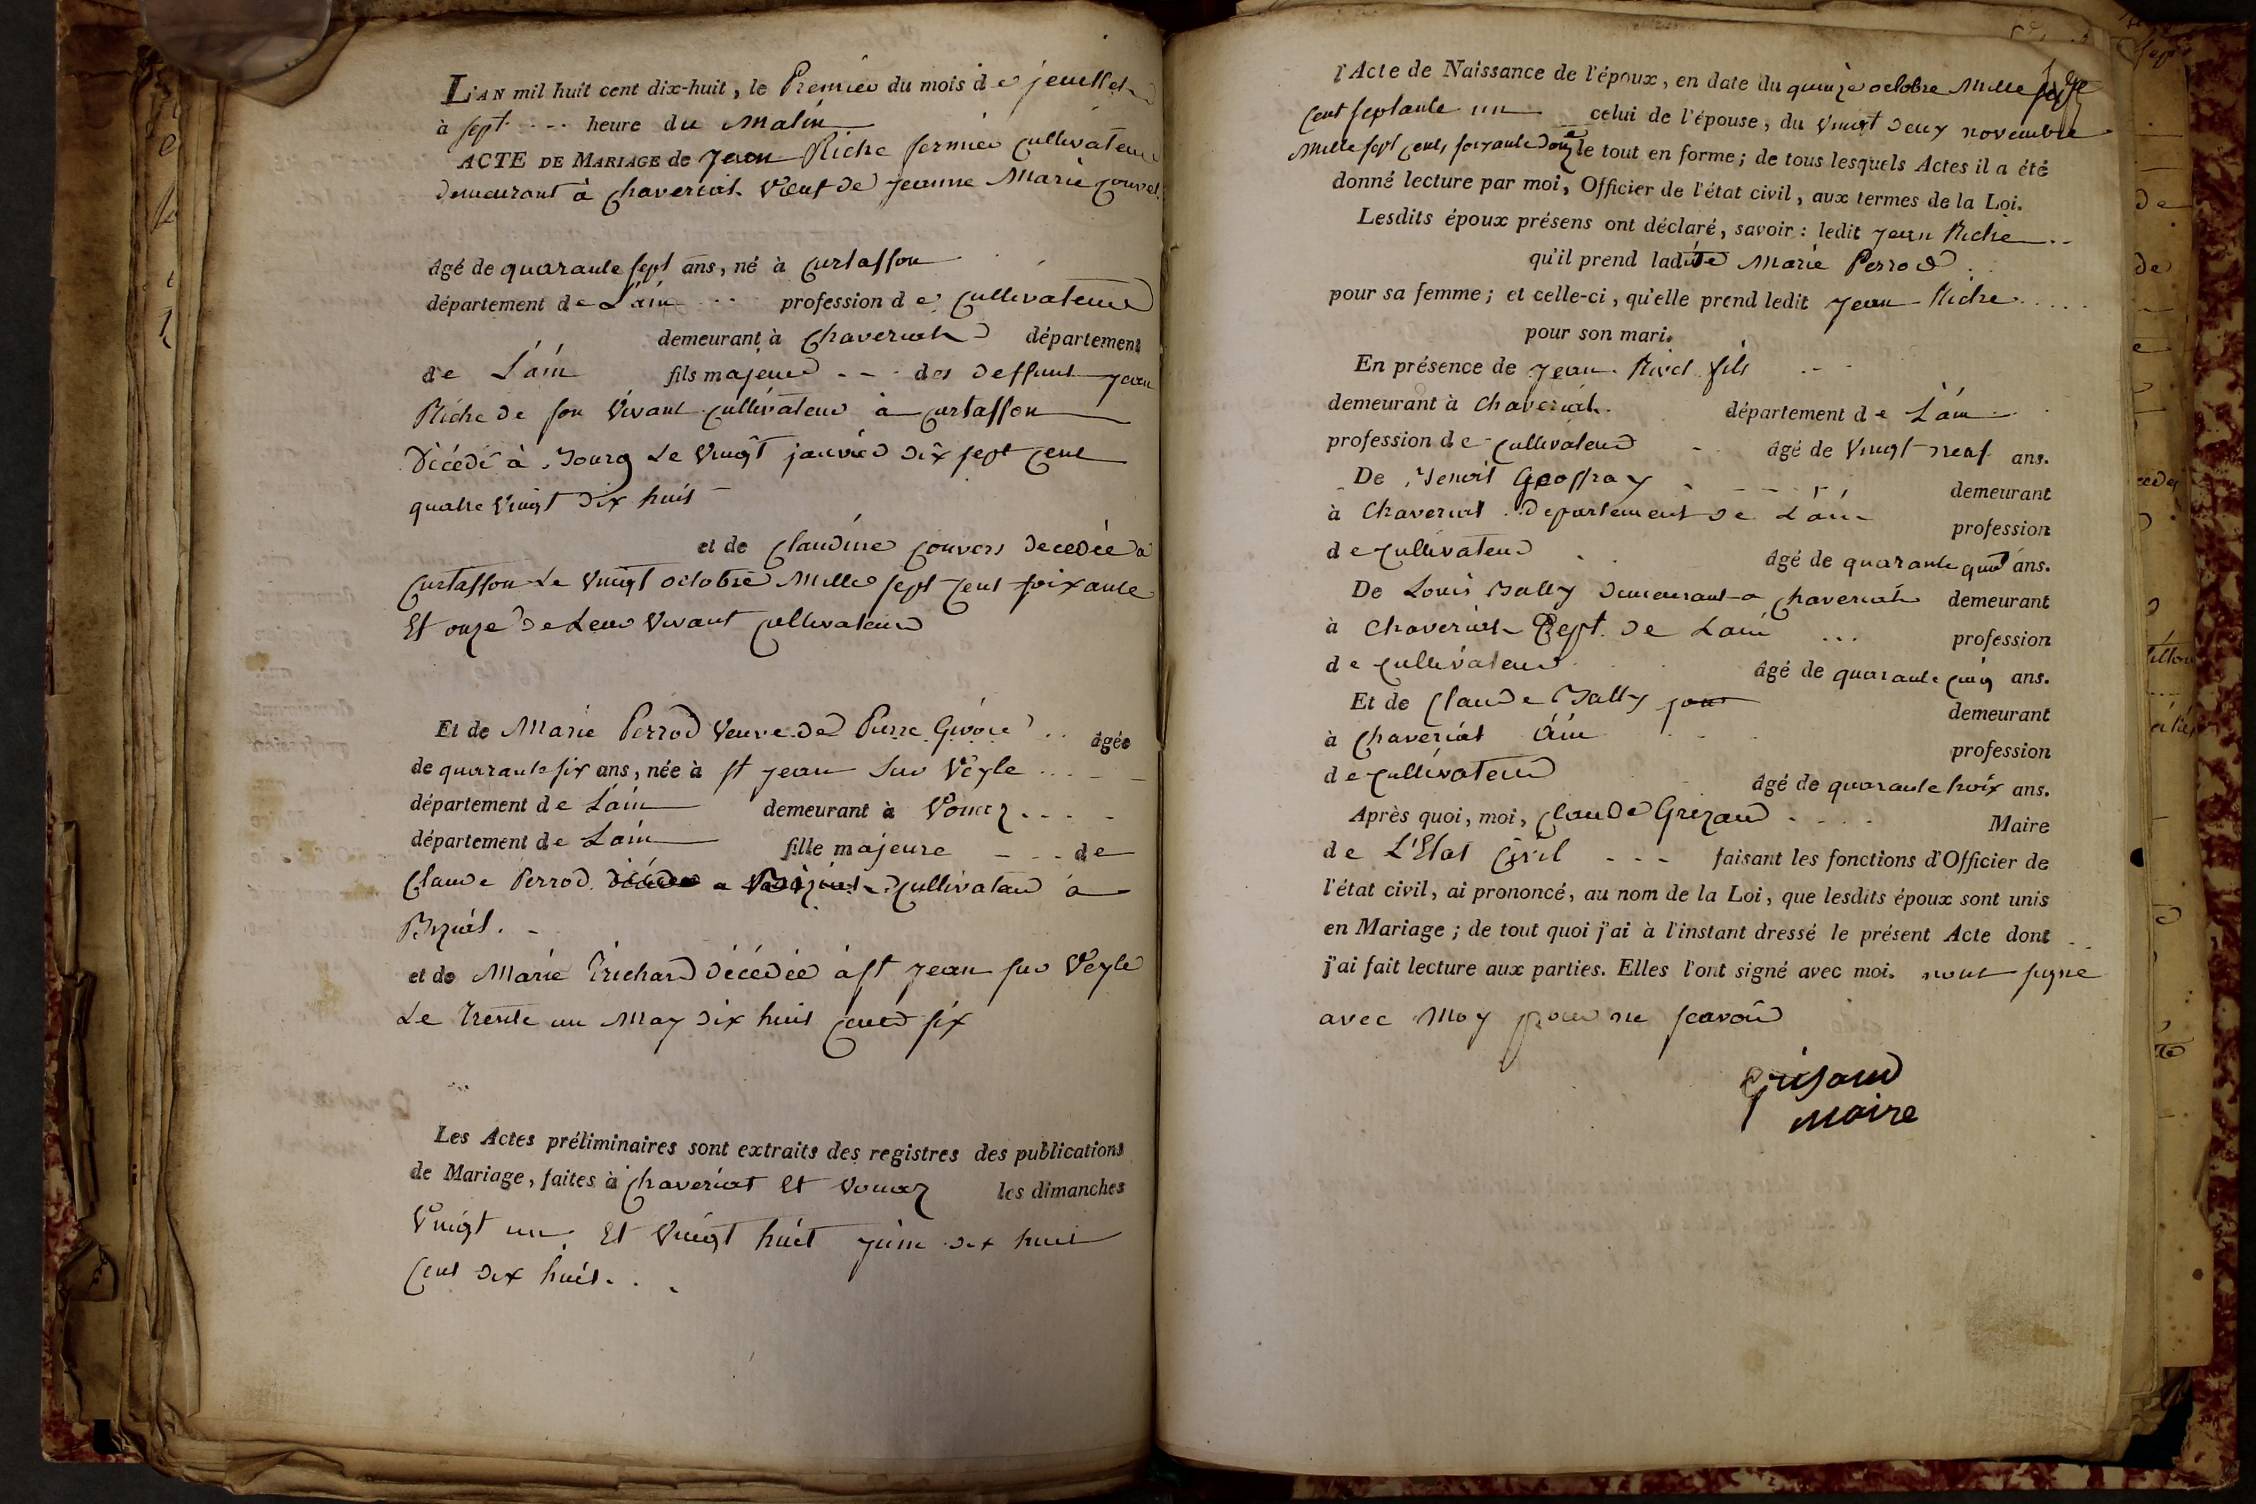 L'AN mil huit cent dix-huit, le Premier du mois de jeuillet
à sept heure du Matin
ACTE DE MARIAGE de Jean Riche fermier cultivateur
demeurant à chaveriat veuf de jeanne Marie convert
âgé de quarante sept ans, né à Curtasson
département de L'ain profession de cultivateur
demeurant à chaveriat département
de L'ain fils majeur des deffunt jean
Riche de son vivant cultivateur à curtasson
décédé à Bourg Le vingt janvier dix sept cent
quatre vingt dix huit
et de claudine convers decedée a
Curtasson Le vingt octobre Mille sept cent soixante
Et onze de Leur vivant cultivateur
Et de Marie Perrod veuve de Pierre Givore âgée
de quarante six ans, née à st jean sur Veyle
département de L'ain demeurant à Vonnaz
département de L'ain fille majeure de
Claude Perrod cultivateur a
Biziat.
et de Marie Trichard décédée à st jean sur Veyle
Le trente un May dix huit cent six
Les Actes préliminaires sont extraits des registres des publications
de Mariage, faites à chaveriat Et Vonnaz les dimanches
Vingt un Et Vingt huit juin dix huit
Cent dix huit.
l'Acte de Naissance de l'époux, en date du quinze octobre Mille sept
Cent septante un celui de l'épouse, du vingt deux novembre
Mille sept cent soixante douze le tout en forme; de tous lesquels Actes il a été
donné lecture par moi, Officier de l'état civil, aux termes de la Loi.
Lesdits époux présens ont déclaré, savoir : ledit jean Riche
qu'il prend ladite Marie Perrod
pour sa femme; et celle-ci, qu'elle prend ledit jean Riche
pour son mari.
En présence de jean Rivet fils
demeurant à chaveriat département de L'ain
profession de cultivateur âgé de Vingt neuf ans.
De Benoit Geoffray demeurant
à Chaveriat departement de L'ain profession
de cultivateur âgé de quarante quat ans.
De Louis Bally demeurant a chaveriat demeurant
à Chaveriat Dept. de L'ain profession
de cultivateur âgé de quarante cinq ans.
Et de Claude Bally demeurant
à Chaveriat Ain profession
de cultivateur âgé de quarante trois ans.
Après quoi, moi, Claude Grezaud Maire
de L'Etat Civil faisant les fonctions d'Officier de
l'état civil, ai prononcé, au nom de la Loi, que lesdits époux sont unis
en Mariage; de tout quoi j'ai à l'instant dressé le présent Acte dont
j'ai fait lecture aux parties. Elles l'ont signé avec moi. nont signe
avec Moy pour ne scavoir
Grisaud
Maire